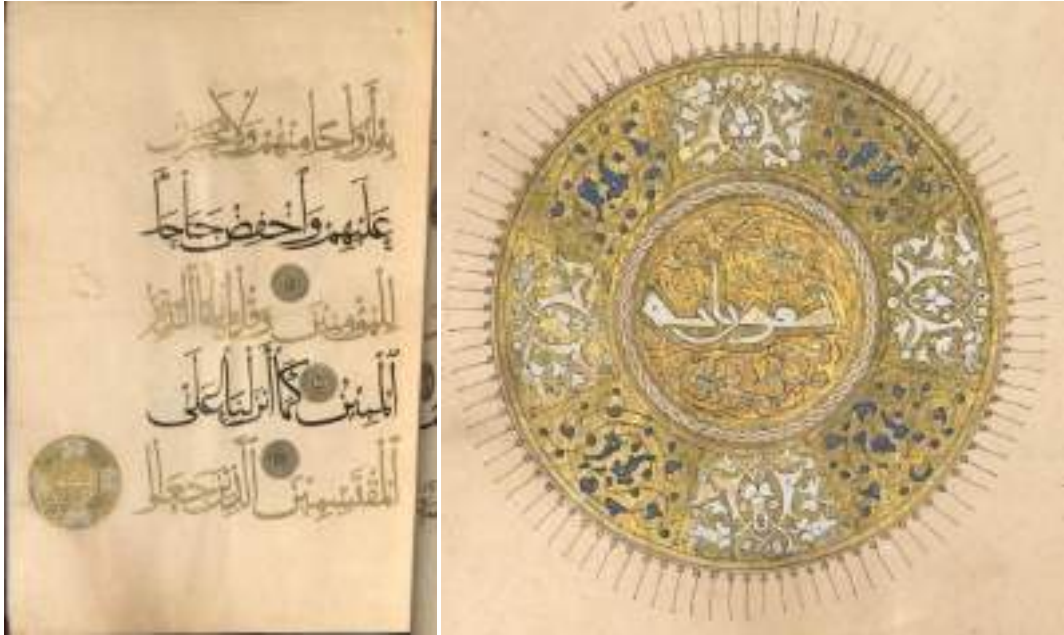 به أزواجا منهم ولا تحزن
عليهم واخفض جناحك
للمؤمنين وقل إني أنا النذير
المبين كما أنزلنا على
المقتسمين الذين جعلوا
تسعون اية